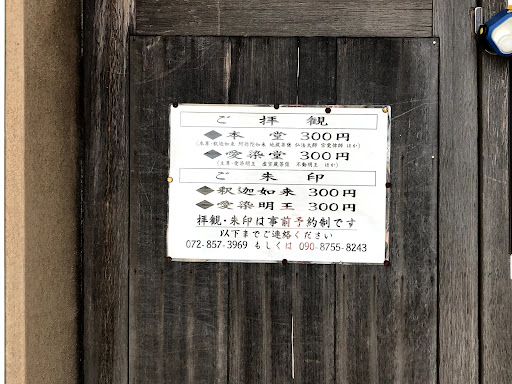 ご拝観
◆本堂 300円
(本尊・釈迦如来 阿弥陀如来 地蔵菩薩 弘法大師 宗叡僧師 ほか)
◆愛染堂 300円
(主尊・愛染明王 虚空蔵菩薩 不動明王 ほか)
ご朱印
◆釈迦如来 300円
◆愛染明王 300円
拝観・朱印は事前予約制です
以下までご連絡ください
072-857-3969 もしくは 090-8755-8243